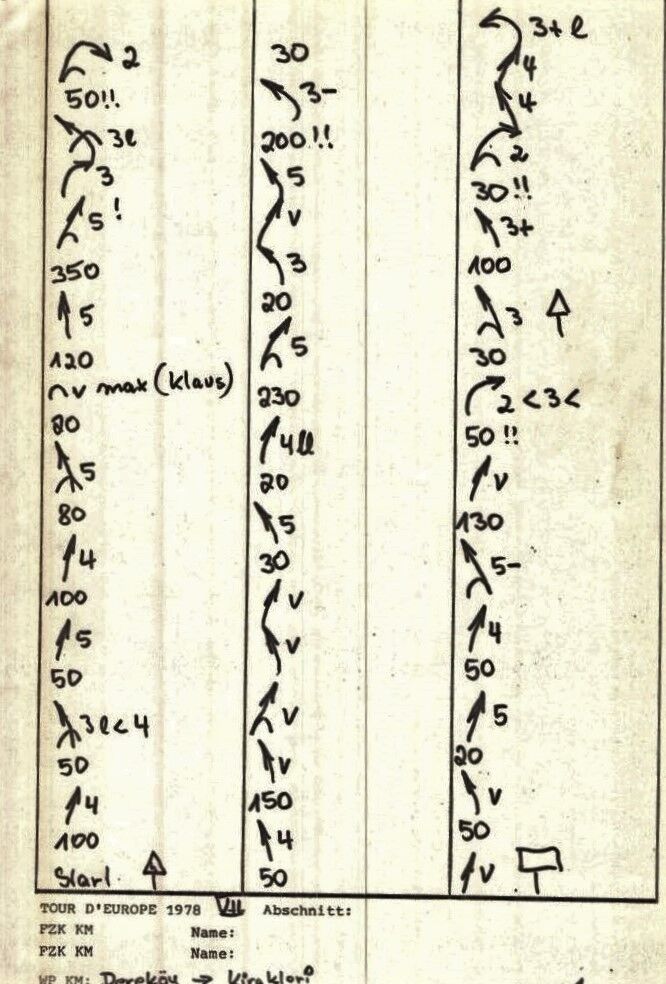 2
50!!
3l
3
5!
350
5
120
v max (Klaus)
80
5
80
4
100
5
50
3l<4
50
4
100
Start
30
3-
200!!
5
v
3
20
5
230
4ll
20
5
30
v
v
v
v
150
4
50
3+ l
4
4
2
30!!
3+
100
3
30
2<3<
50!!
v
130
5-
4
50
5
20
v
50
v
TOUR D'EUROPE 1978 VII Abschnitt:
FZK KM Name:
FZK KM Name:
WP KM: Dereköy →